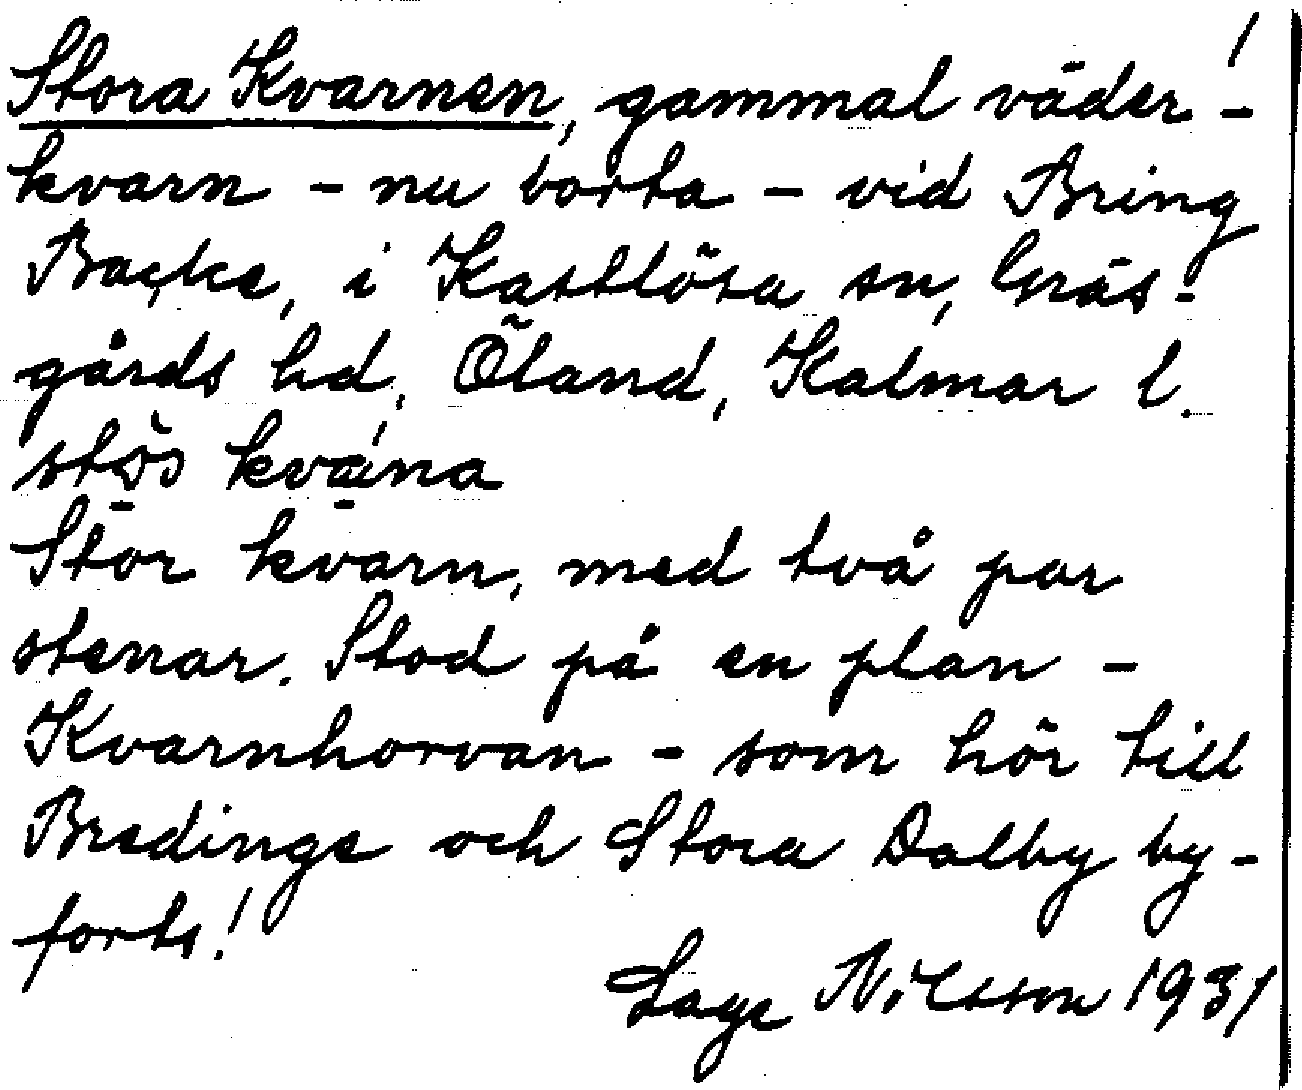 1
Stora Kvarnen, gammal väder-
kvarn - nu borta - vid Bring
Backe, i Kastlösa sn, Gräs-
gårds hd, Öland, Kalmar l.
stös kvána
Stor kvarn, med två par
stenar. Stod på en plan -
Kvarnhorvan - som hör till
Bredinge och Stora Dalby by-
forts!
Lage Nilsson 1931